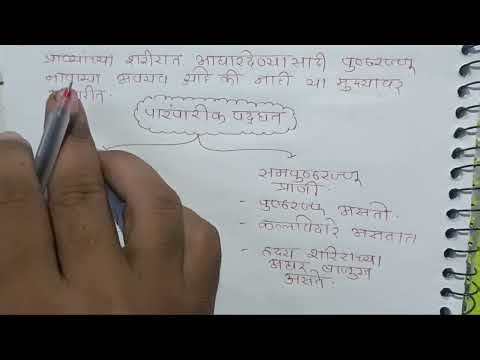 प्राण्यांच्या शरीरात आधार देण्यासाठी पृष्ठरज्जू
नावाचा अवयव आहे की नाही या मुद्द्यावर
पारंपारीक पद्धत
समपृष्ठरज्जू
प्राणी
- पृष्ठरज्जू असतो.
- कल्लाविदारे असतात
- हृदय शरिराच्या
अधर बाजूस
असते.